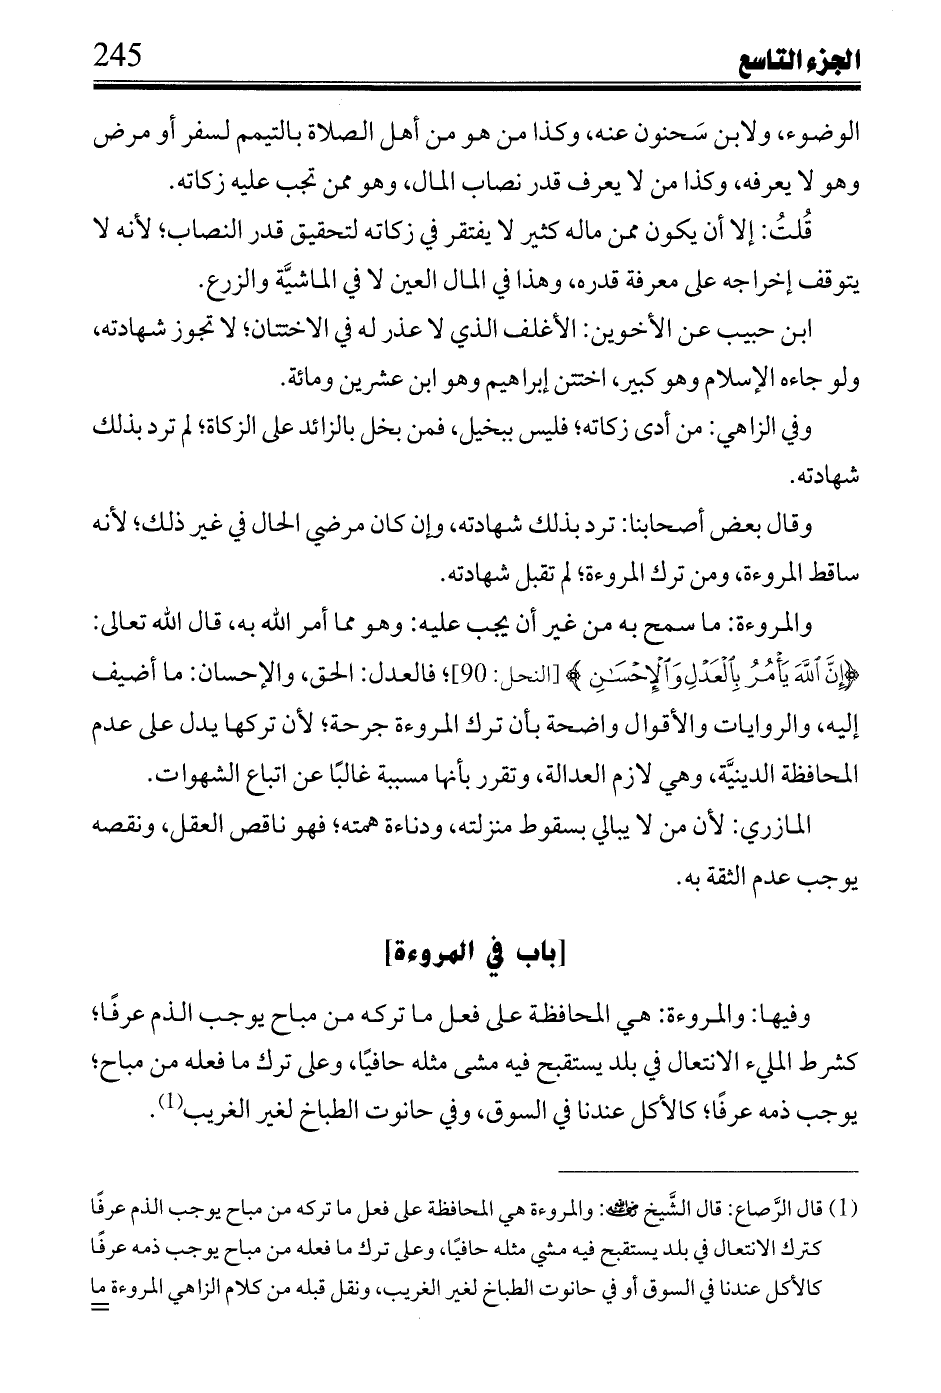 الجزء التاسع 245
الوضوء، ولابن سَحنون عنه، وكذا من هو من أهل الصلاة بالتيمم لسفر أو مرض
وهو لا يعرفه، وكذا من لا يعرف قدر نصاب المال، وهو ممن تجب عليه زكاته.
قُلتُ: إلا أن يكون ممن ماله كثير لا يفتقر في زكاته لتحقيق قدر النصاب؛ لأنه لا
يتوقف إخراجه على معرفة قدره، وهذا في المال العين لا في الماشيَّة والزرع.
ابن حبيب عن الأخوين: الأغلف الذي لا عذر له في الاختتان؛ لا تجوز شهادته،
ولو جاءه الإسلام وهو كبير، اختتن إبراهيم وهو ابن عشرين ومائة.
وفي الزاهي: من أدى زكاته؛ فليس ببخيل، فمن بخل بالزائد على الزكاة؛ لم ترد بذلك
شهادته.
وقال بعض أصحابنا: ترد بذلك شهادته، وإن كان مرضي الحال في غير ذلك؛ لأنه
ساقط المروءة، ومن ترك المروءة؛ لم تقبل شهادته.
والمروءة: ما سمح به من غير أن يجب عليه: وهو مما أمر الله به، قال الله تعالى:
﴿إِنَّ ٱللَّهَ يَأْمُرُ بِٱلْعَدْلِ وَٱلْإِحْسَـٰنِ﴾ [النحل: 90]؛ فالعدل: الحق، والإحسان: ما أضيف
إليه، والروايات والأقوال واضحة بأن ترك المروءة جرحة؛ لأن تركها يدل على عدم
المحافظة الدينيَّة، وهي لازم العدالة، وتقرر بأنها مسببة غالبًا عن اتباع الشهوات.
المازري: لأن من لا يبالي بسقوط منزلته، ودناءة همته؛ فهو ناقص العقل، ونقصه
يوجب عدم الثقة به.
[باب في المروءة]
وفيها: والمروءة: هي المحافظة على فعل ما تركه من مباح يوجب الذم عرفًا؛
كشرط المليء الانتعال في بلد يستقبح فيه مشى مثله حافيًا، وعلى ترك ما فعله من مباح؛
يوجب ذمه عرفًا؛ كالأكل عندنا في السوق، وفي حانوت الطباخ لغير الغريب(1).
(1) قال الرَّصاع: قال الشَّيخ رحمه الله: والمروءة هي المحافظة على فعل ما تركه من مباح يوجب الذم عرفًا
كترك الانتعال في بلد يستقبح فيه مشي مثله حافيًا، وعلى ترك ما فعله من مباح يوجب ذمه عرفًا
كالأكل عندنا في السوق أو في حانوت الطباخ لغير الغريب، ونقل قبله من كلام الزاهي المروءة ما
=